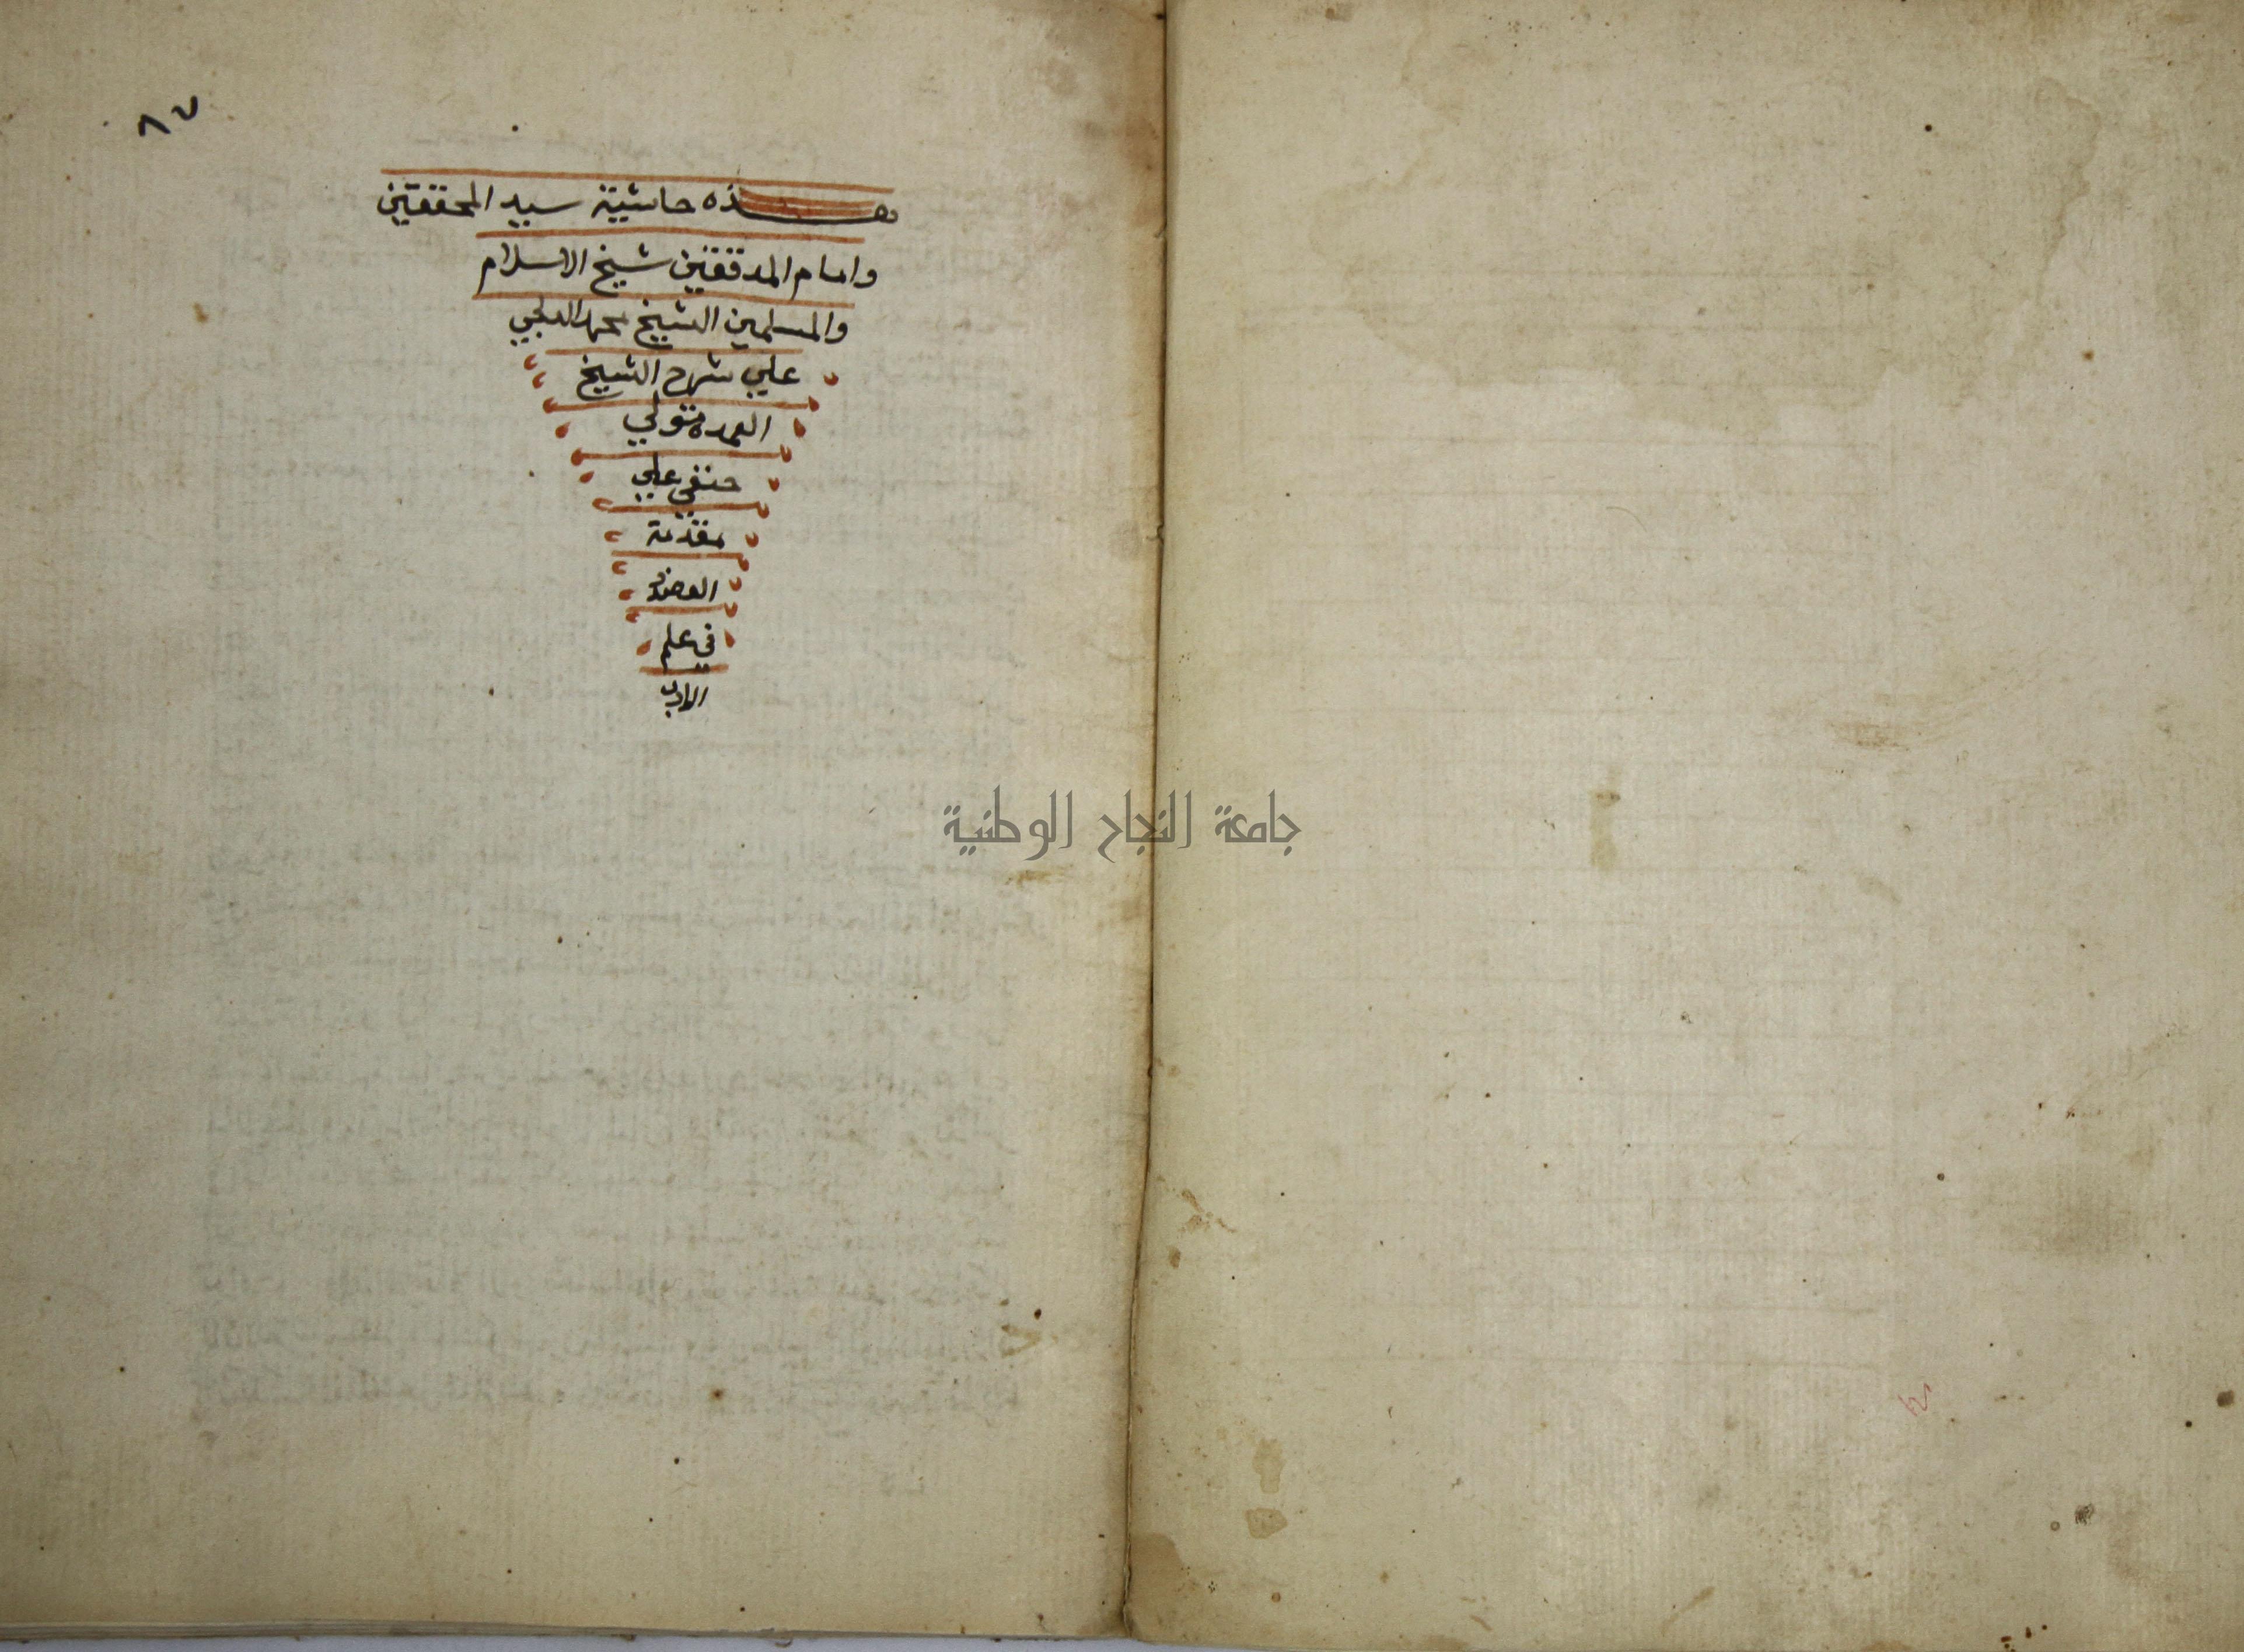 ٨٧
هذه حاشية سيد المحققين
وامام المدققين شيخ الاسلام
والمسلمين الشيخ محمد الدلجي
علي شرح الشيخ
العمدة متولي
حنفي علي
مقدمة
العضد
في علم
الاداب
جامعة النجاح الوطنية